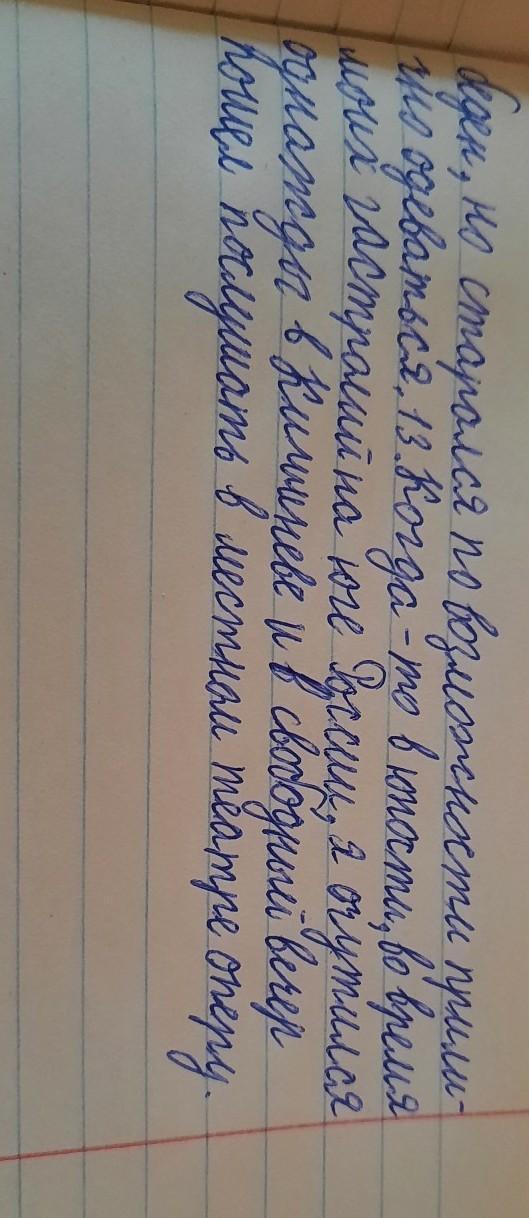 беден, но старался по возможности прили-
чно одеваться. 13. Когда-то в юности, во время
моих гастролей на юге России, я очутился
однажды в Кишиневе и в свободный вечер
пошел послушать в местном театре оперу.